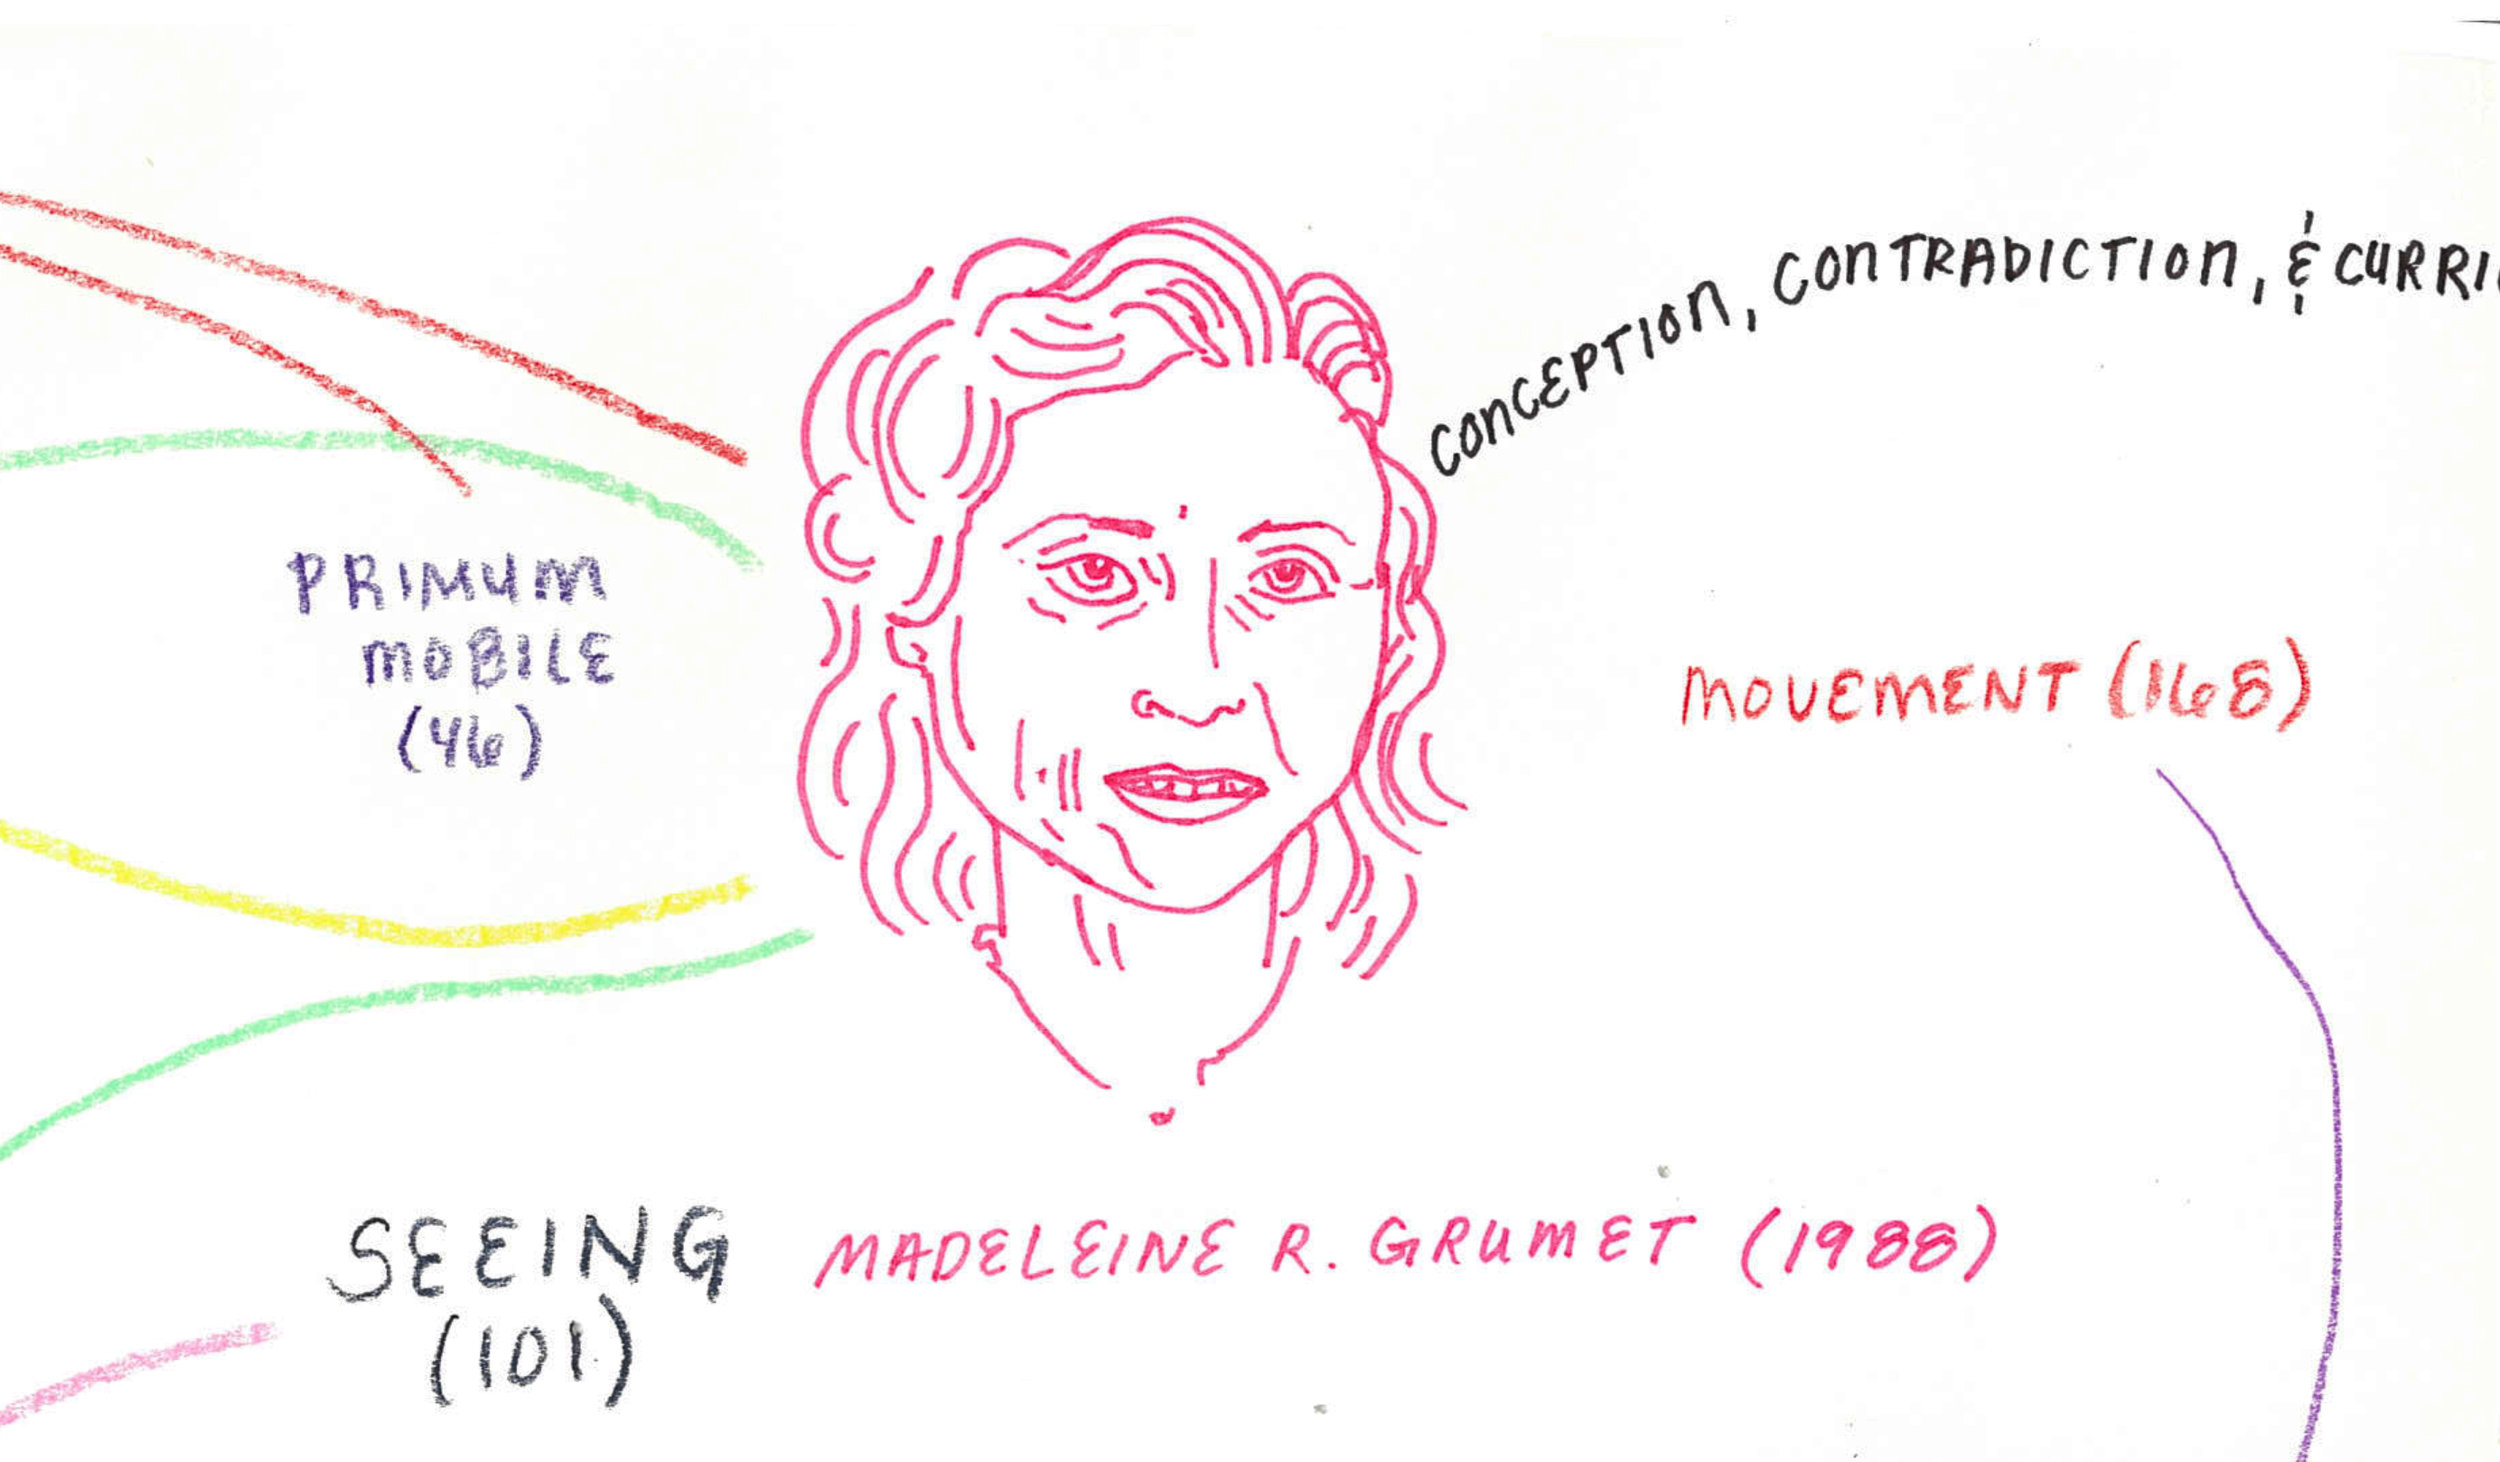 CONCEPTION, CONTRADICTION, & CURRI
PRIMUM
MOBILE
(46)
MOVEMENT (168)
SEEING
(101)
MADELEINE R. GRUMET (1988)